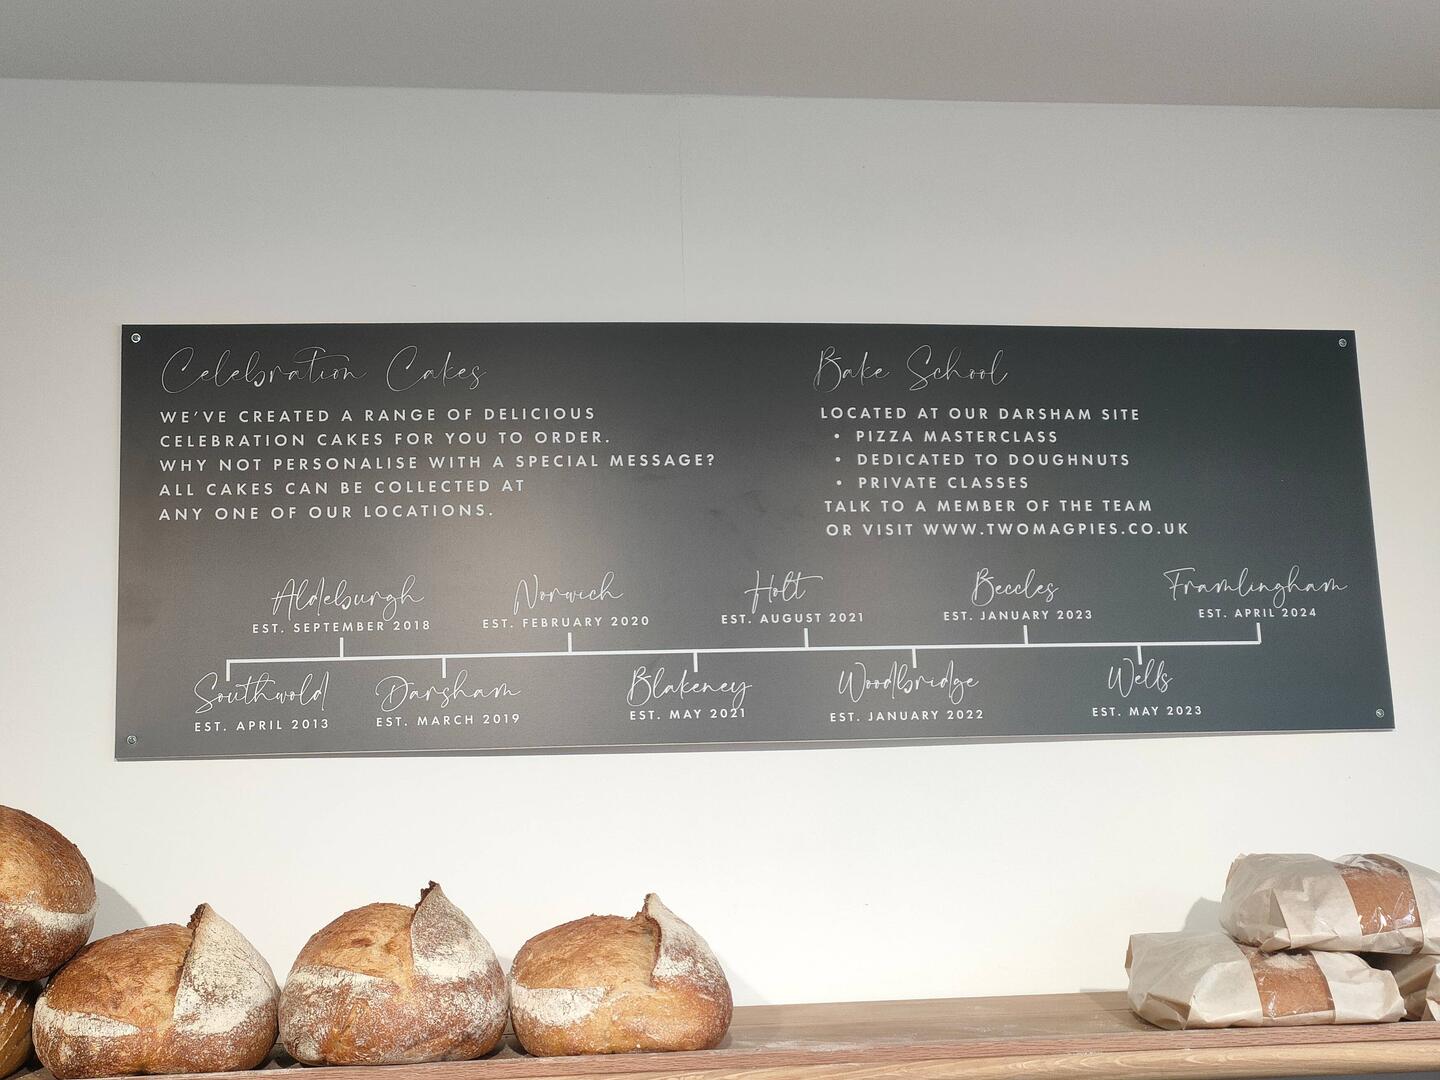 Celebration Cakes
WE'VE CREATED A RANGE OF DELICIOUS
CELEBRATION CAKES FOR YOU TO ORDER.
WHY NOT PERSONALISE WITH A SPECIAL MESSAGE?
ALL CAKES CAN BE COLLECTED AT
ANY ONE OF OUR LOCATIONS.
Bake School
LOCATED AT OUR DARSHAM SITE
• PIZZA MASTERCLASS
• DEDICATED TO DOUGHNUTS
• PRIVATE CLASSES
TALK TO A MEMBER OF THE TEAM
OR VISIT WWW.TWOMAGPIES.CO.UK
Aldeburgh
EST. SEPTEMBER 2018
Norwich
EST. FEBRUARY 2020
Holt
EST. AUGUST 2021
Beccles
EST. JANUARY 2023
Framlingham
EST. APRIL 2024
Southwold
EST. APRIL 2013
Darsham
EST. MARCH 2019
Blakeney
EST. MAY 2021
Woodbridge
EST. JANUARY 2022
Wells
EST. MAY 2023